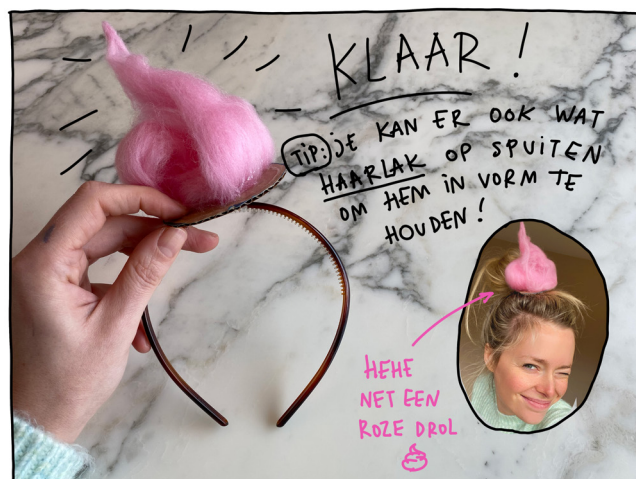 KLAAR!
TIP: JE KAN ER OOK WAT
HAARLAK OP SPUITEN
OM HEM IN VORM TE
HOUDEN!
HEHE
NET EEN
ROZE DROL